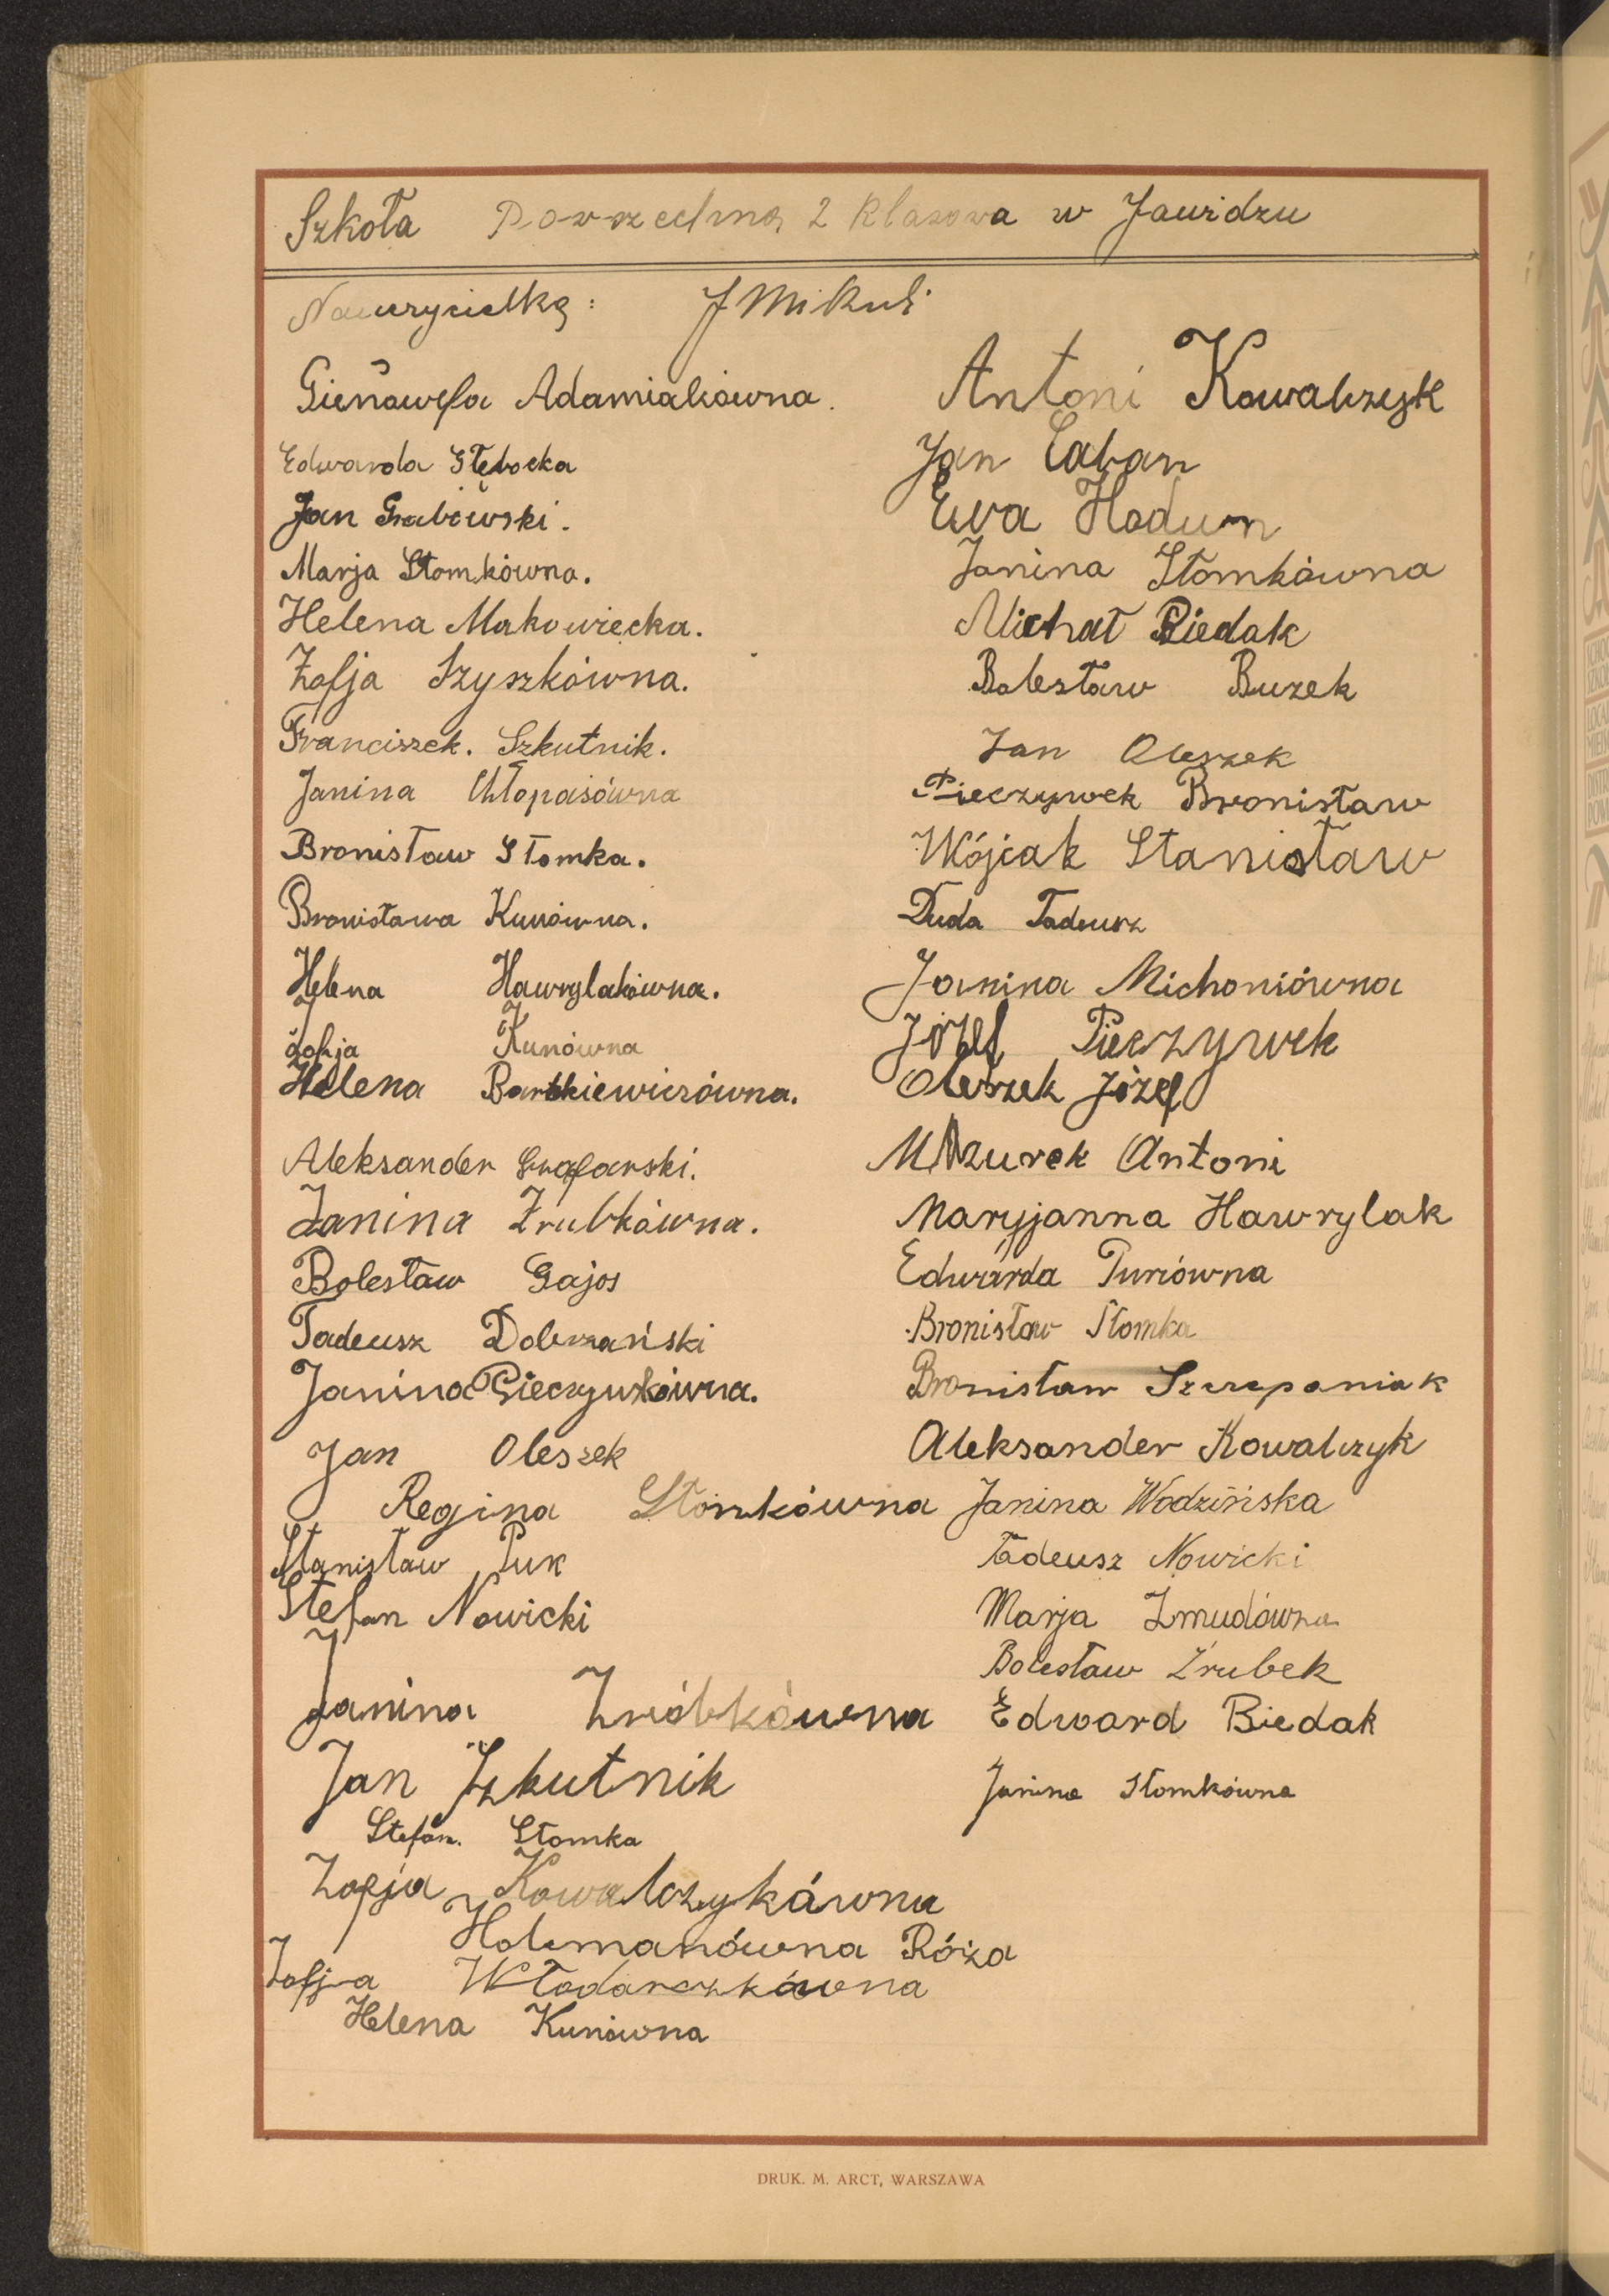 Szkoła Powszechna 2 klasowa w Jawidzu
Nauczycielka: J Mikuli
Gienowefa Adamiakówna.
Edwarda Głębocka
Jan Grabowski.
Marja Słomkówna.
Helena Makowiecka.
Zofja Szyszkówna.
Franciszek. Szkutnik.
Janina Chłopasówna
Bronisław Słomka.
Bronisława Kunówna.
Helena Hawrylakówna.
Zofja Kunówna
Helena Bartkiewiczówna.
Aleksander Grafarski.
Janina Zrubkówna.
Bolesław Gajos
Tadeusz Dobrzański
Janina Pieczywkówna.
Jan Oleszek
Regina Słomkówna
Stanisław Puk
Stefan Nowicki
Janina Zróbkówna
Jan Szkutnik
Stefan. Słomka
Zofja Kowalczykówna
Holcmanówna Róża
Zofja Włodarczkówna
Helena Kunówna
Antoni Kowalczyk
Jan Caban
Ewa Hodun
Janina Słomkówna
Michał Biedak
Bolesław Buzek
Jan Oleszek
Pieczywek Bronisław
Wójcak Stanisław
Duda Tadeusz
Janina Michoniówna
Józef Pieczywek
Oleszek Józef
Mazurek Antoni
Maryjanna Hawrylak
Edwarda Puniówna
Bronisław Słomka
Bronisław Szczepaniak
Aleksander Kowalczyk
Janina Wodzińska
Tadeusz Nowicki
Marja Zmudówna
Bolesław Zrubek
Edward Biedak
Janina Słomkówna
DRUK. M. ARCT, WARSZAWA